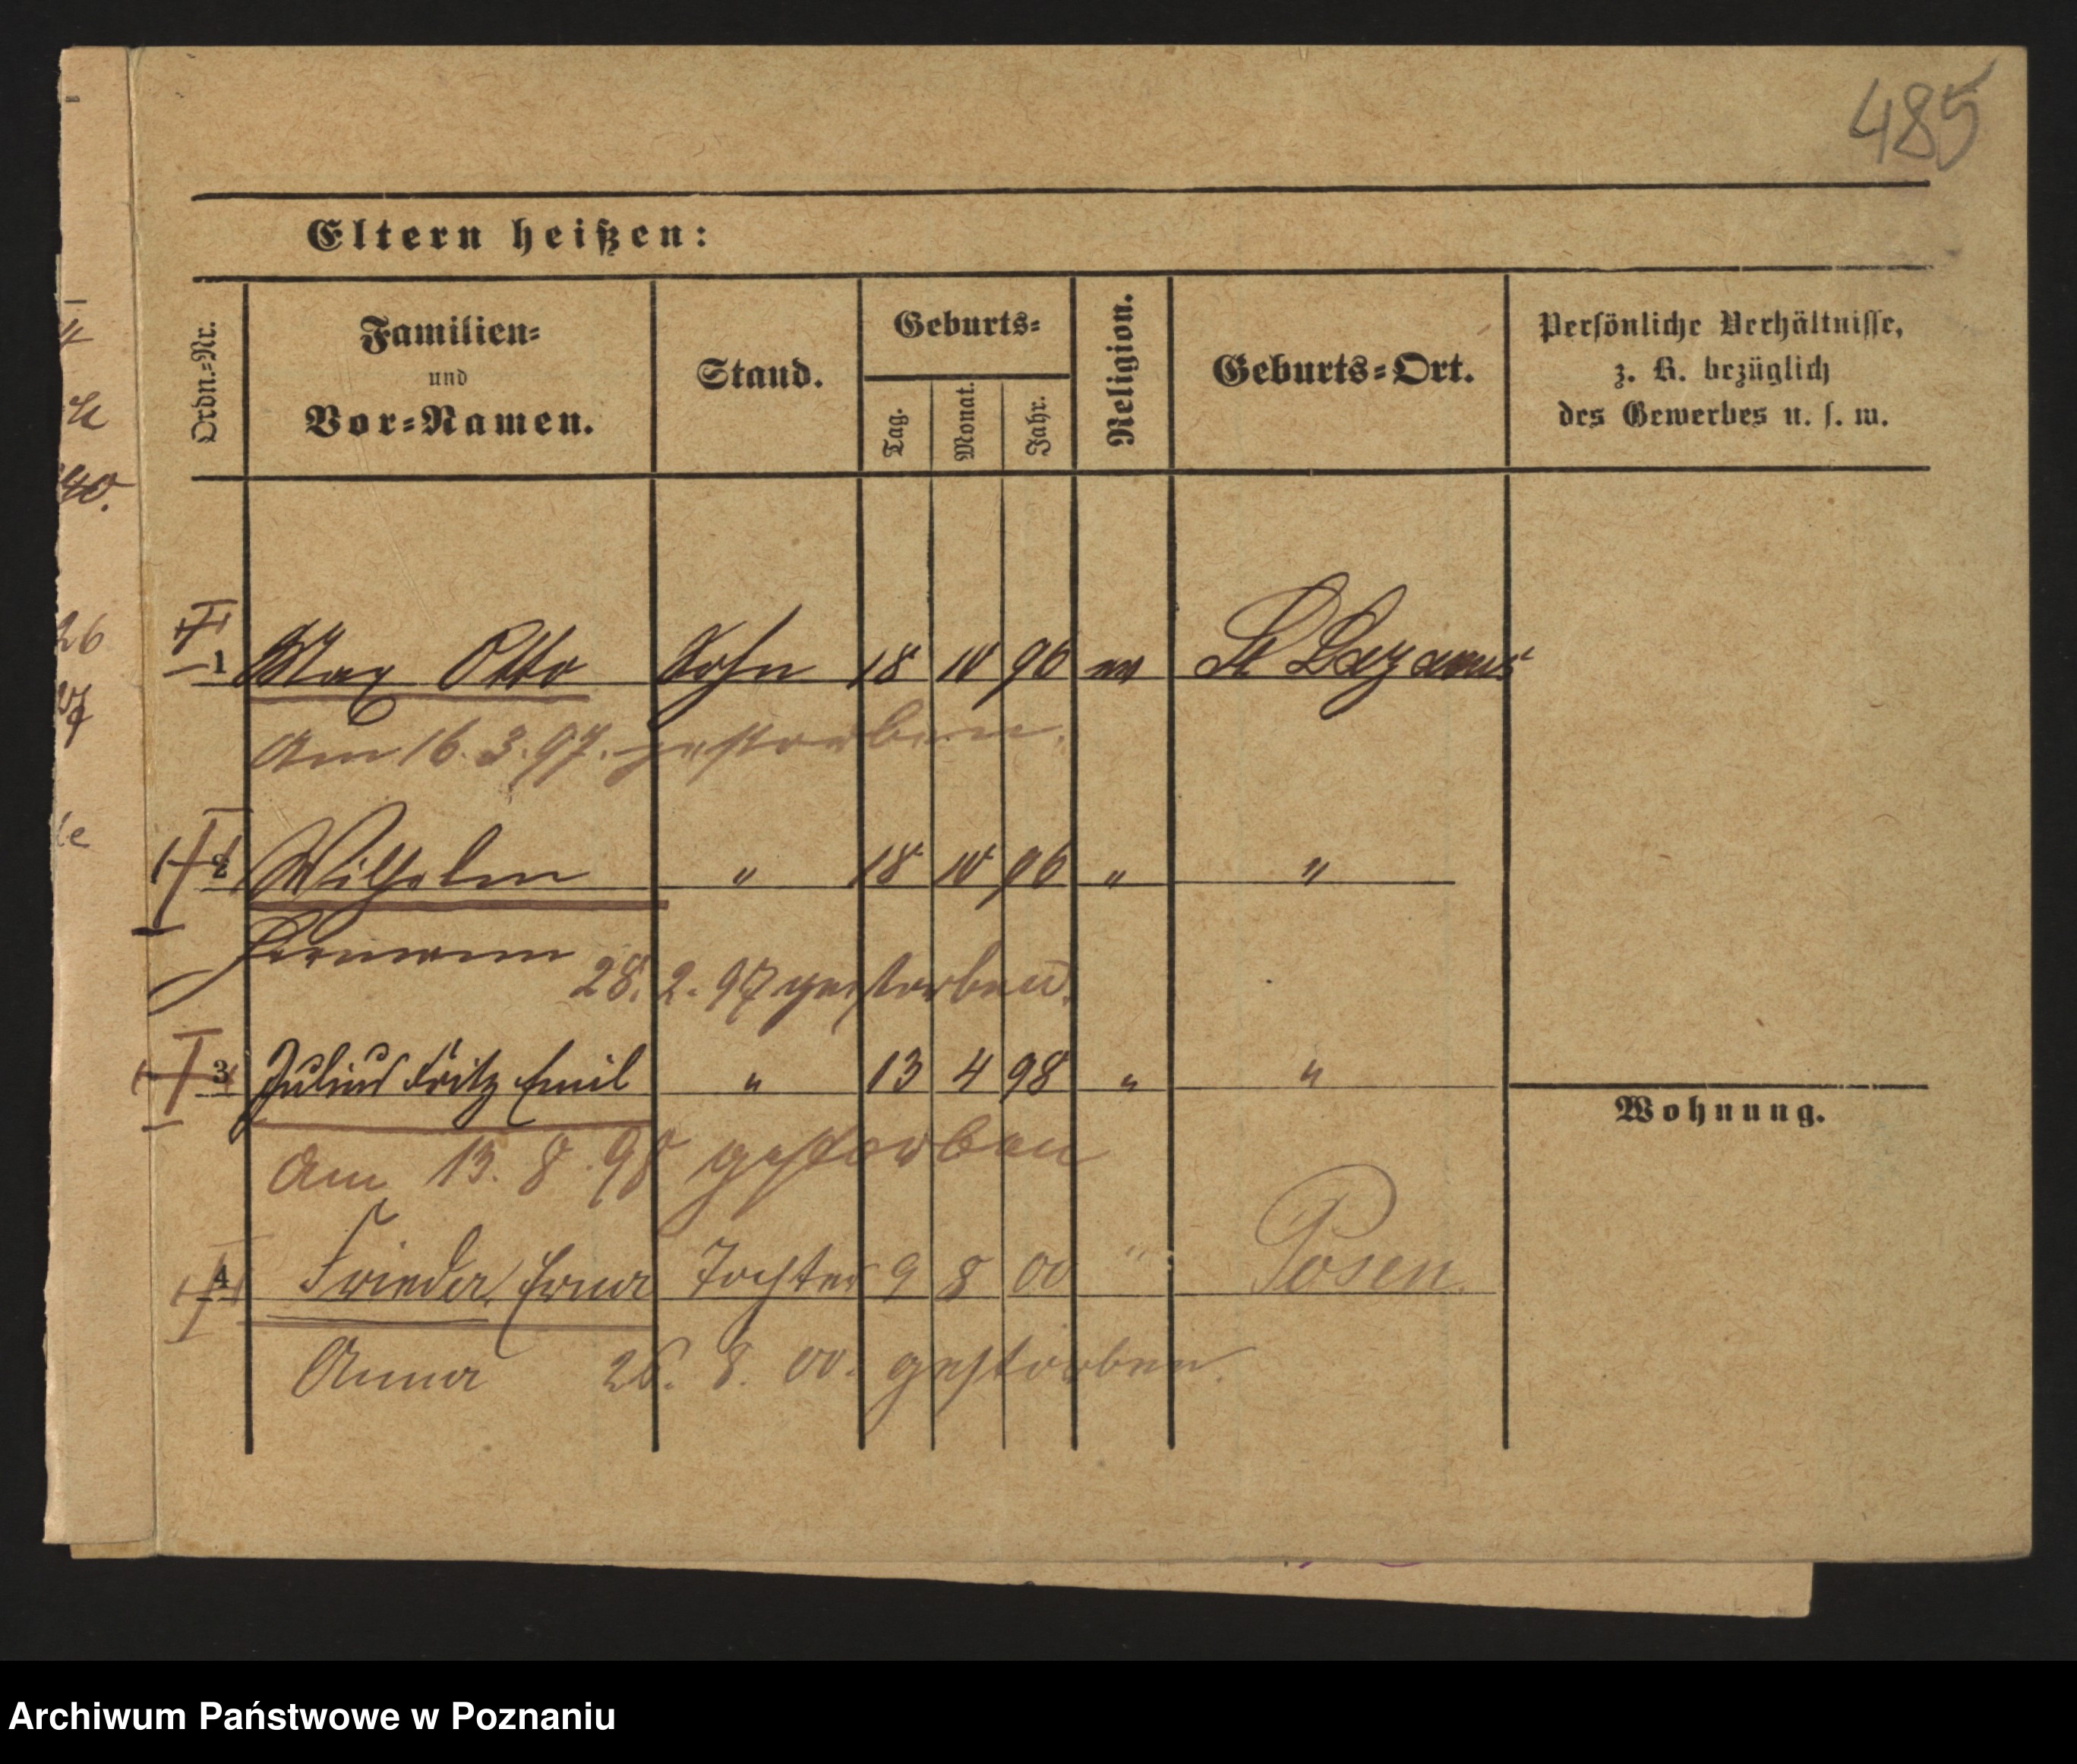 485
Eltern heißen:
Ordn.-Nr.
Familien-
und
Vor-Namen.
Stand.
Geburts-
Tag.
Monat.
Jahr.
Religion.
Geburts-Ort.
Persönliche Verhältnisse,
z. B. bezüglich
des Gewerbes u. s. w.
1 Max Otto Sohn 18 10 96 ev St Lazarus
Am 16. 3. 97. gestorben.
2 Wilhelm " 18 10 96 " "
Hermann 28. 2. 97 gestorben.
3 Julius Fritz Emil " 13 4 98 " "
Wohnung.
Am 13. 8. 98 gestorben
4 Frieda, Erna Tochter 9 8 00 " Posen.
Anna 26. 8. 00. gestorben.
26
Archiwum Państwowe w Poznaniu